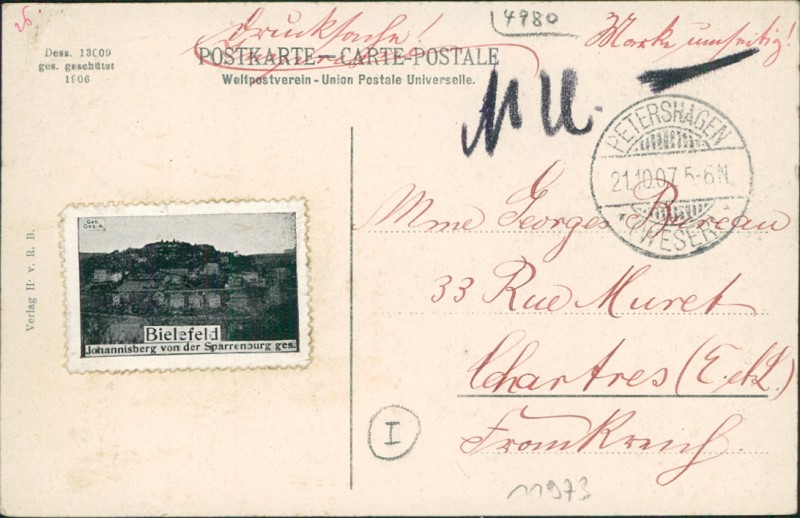 26.
Drucksache!
4980
Marke umseitig!
Dess. 13009
ges. geschützt
1906
POSTKARTE – CARTE-POSTALE
Weltpostverein - Union Postale Universelle.
M U.
PETERSHAGEN
21.10.07 5-6N.
(WESER)
Verlag H. v. R. B.
Bielefeld
Johannisberg von der Sparrenburg ges.
Mme Georges Bureau
33 Rue Muret
Chartres (E.etL.)
Frankreich.
I
11973